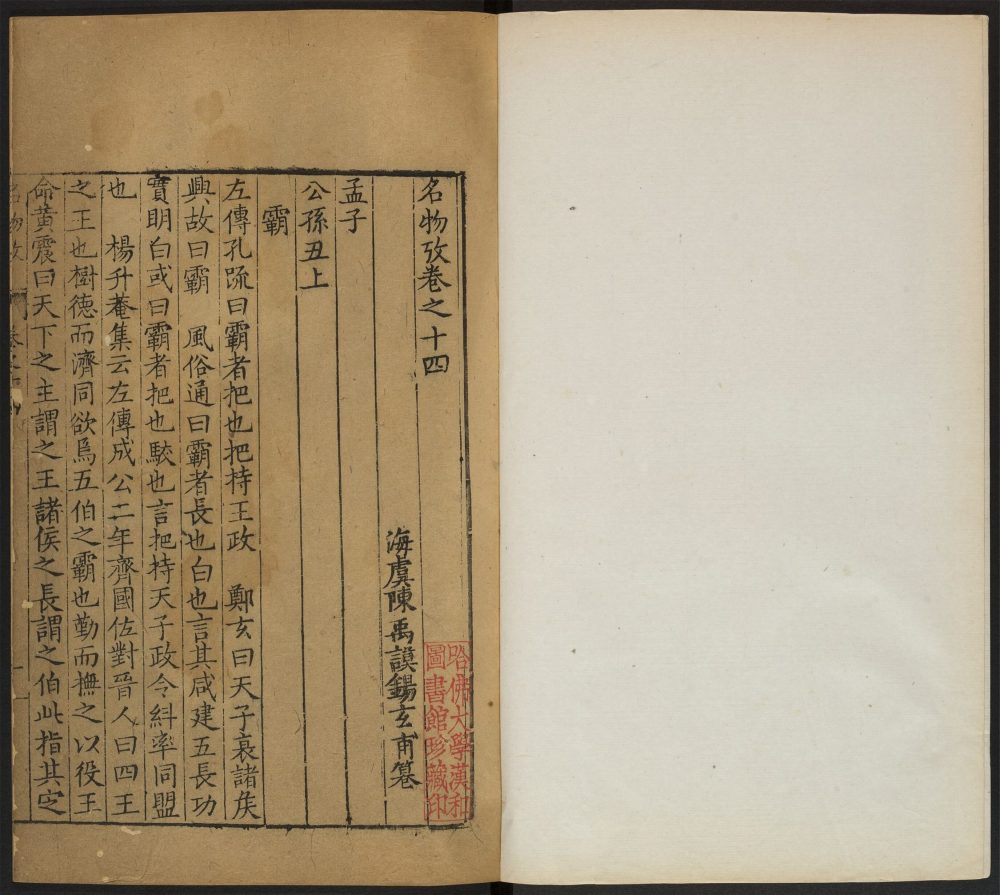 名物攷卷之十四
海虞陳禹謨錫玄甫篹
孟子
公孫丑上
霸
左傳孔疏曰霸者把也把持王政　鄭玄曰天子衰諸矦
興故曰霸　風俗通曰霸者長也白也言其咸建五長功
實明白或曰霸者把也駮也言把持天子政令糾率同盟
也　楊升菴集云左傳成公二年齊國佐對晉人曰四王
之王也樹德而濟同欲焉五伯之霸也勤而撫之以役王
命黄震曰天下之主謂之王諸侯之長謂之伯此指其定
名物攷　卷之十四　一
哈佛大學漢和
圖書館珍藏印